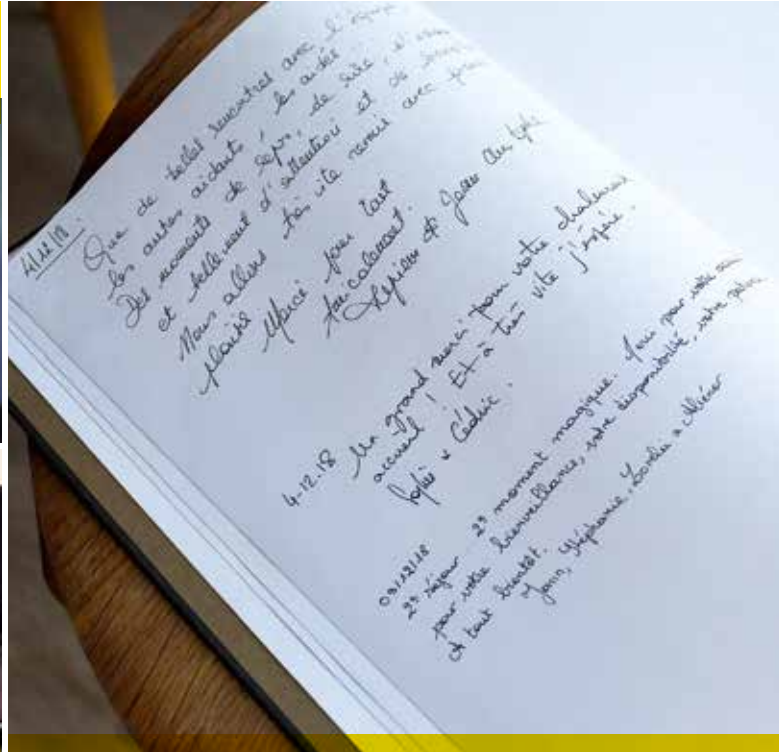 4/12/18.
Que de belles rencontres avec l'équipe
les autres aidants, les aidés
Des moments de repos, de rire,
et tellement d'attention et de
Nous allons très vite revenir avec
plaisir Merci pour tout
Amicalement.
& Jean
4-12-18
Un grand merci pour votre chaleureux
accueil ! Et à très vite j'espère.
Sophie & Cédric.
09/12/18
2e séjour. 2e moment magique. Merci pour votre
pour votre bienveillance, votre disponibilité, votre
A tout bientôt.
Yann, Stéphanie, &